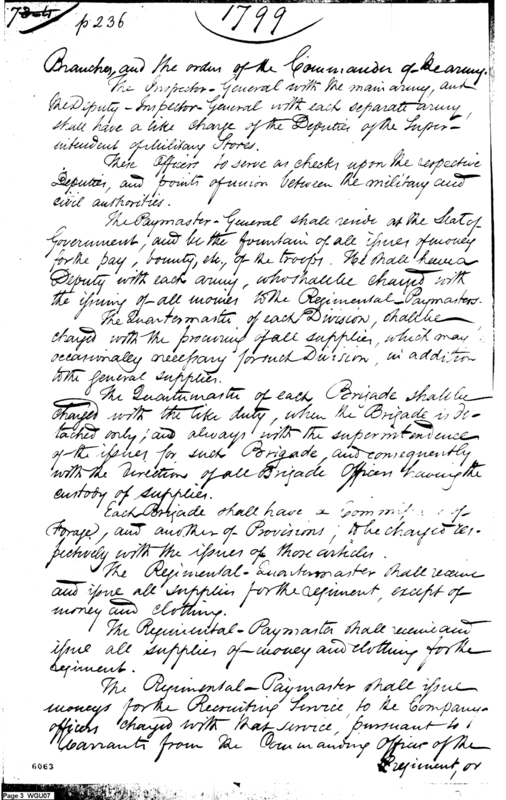 p 236
1799
Branches, and the orders of the Commander of the army.
The Inspector-General with the main army, and
the Deputy-Inspector-General with each separate army,
shall have a like charge of the Deputies of the Super-
intendent of Military Stores.
These Officers to serve as checks upon the respective
Deputies, and points of union between the military and
civil authorities.
The Paymaster-General shall reside at the Seat of
Government; and be the fountain of all issues of money
for the pay, bounty, etc., of the troops. He shall have a
Deputy with each army, who shall be charged with
the issuing of all monies to the Regimental-Paymasters.
The Quartermaster of each Division, shall be
charged with the procuring of all supplies, which may
occasionally necessary for such Division, in addition
to the general supplies.
The Quartermaster of each Brigade shall be
charged with the like duty, when the Brigade is de-
tached only; and always with the superintendence
of the issues for such Brigade, and consequently
with the direction of all Brigade Officers having the
custody of supplies.
Each Brigade shall have a Commissary of
Forage, and another of Provisions; to be charged res-
pectively with the issues of those articles.
The Regimental-Quartermaster shall receive
and issue all supplies for the regiment, except of
money and clothing.
The Regimental-Paymaster shall receive and
issue all supplies of money and clothing for the
regiment.
The Regimental-Paymaster shall issue
moneys for the Recruiting Service, to the Company-
officers charged with that service, pursuant to
warrants from the Commanding Officer of the
Regiment, or
6063
Page 3 WGU07